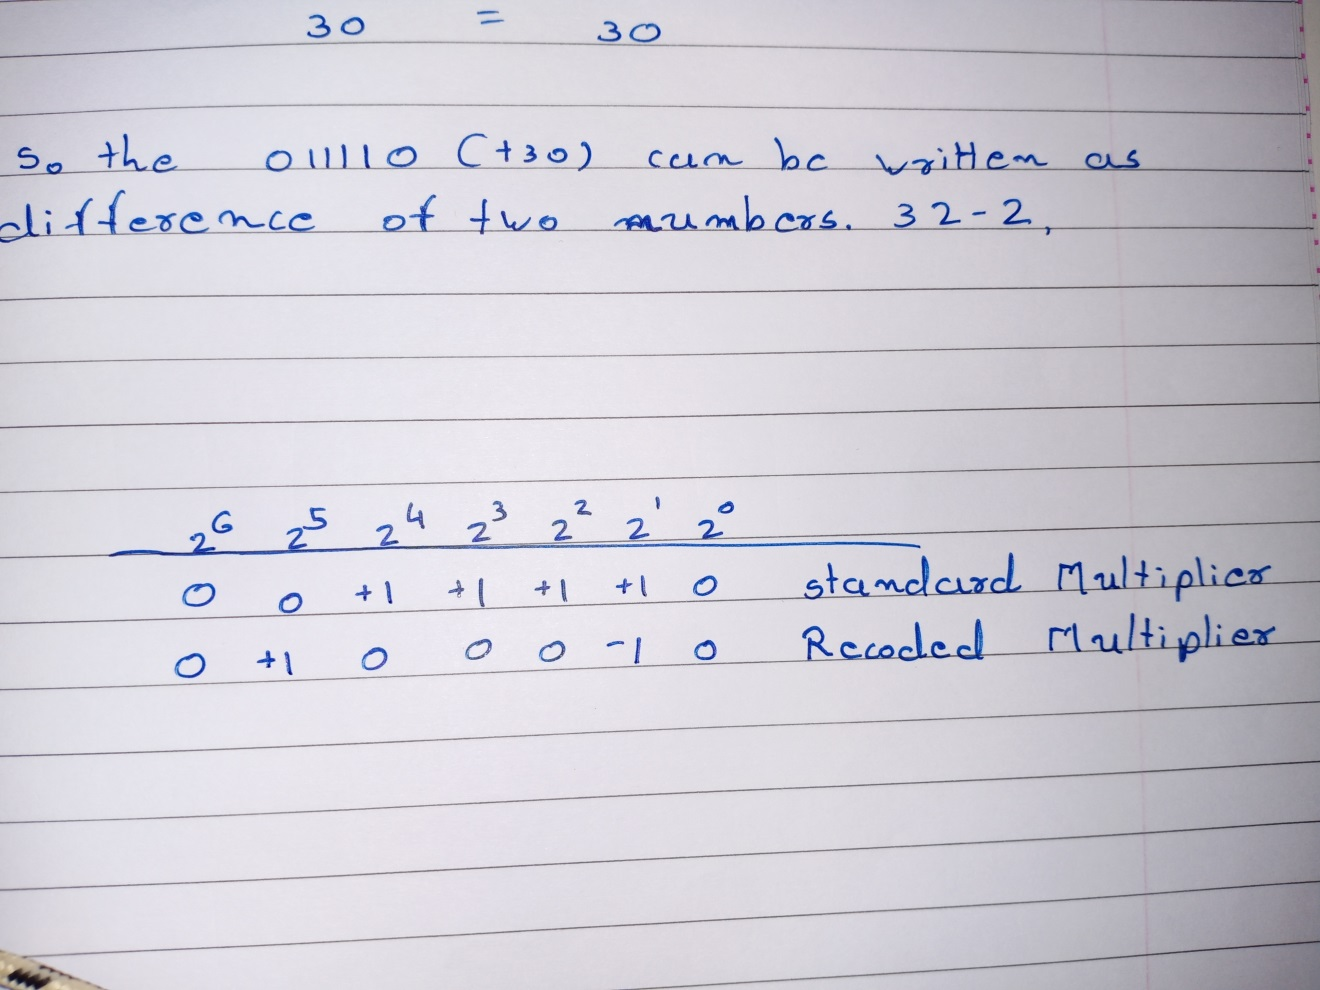 30 = 30
So the 011110 (+30) can be written as
difference of two numbers. 32-2,
2^6 2^5 2^4 2^3 2^2 2^1 2^0
0 0 +1 +1 +1 +1 0 standard Multiplier
0 +1 0 0 0 -1 0 Recoded Multiplier